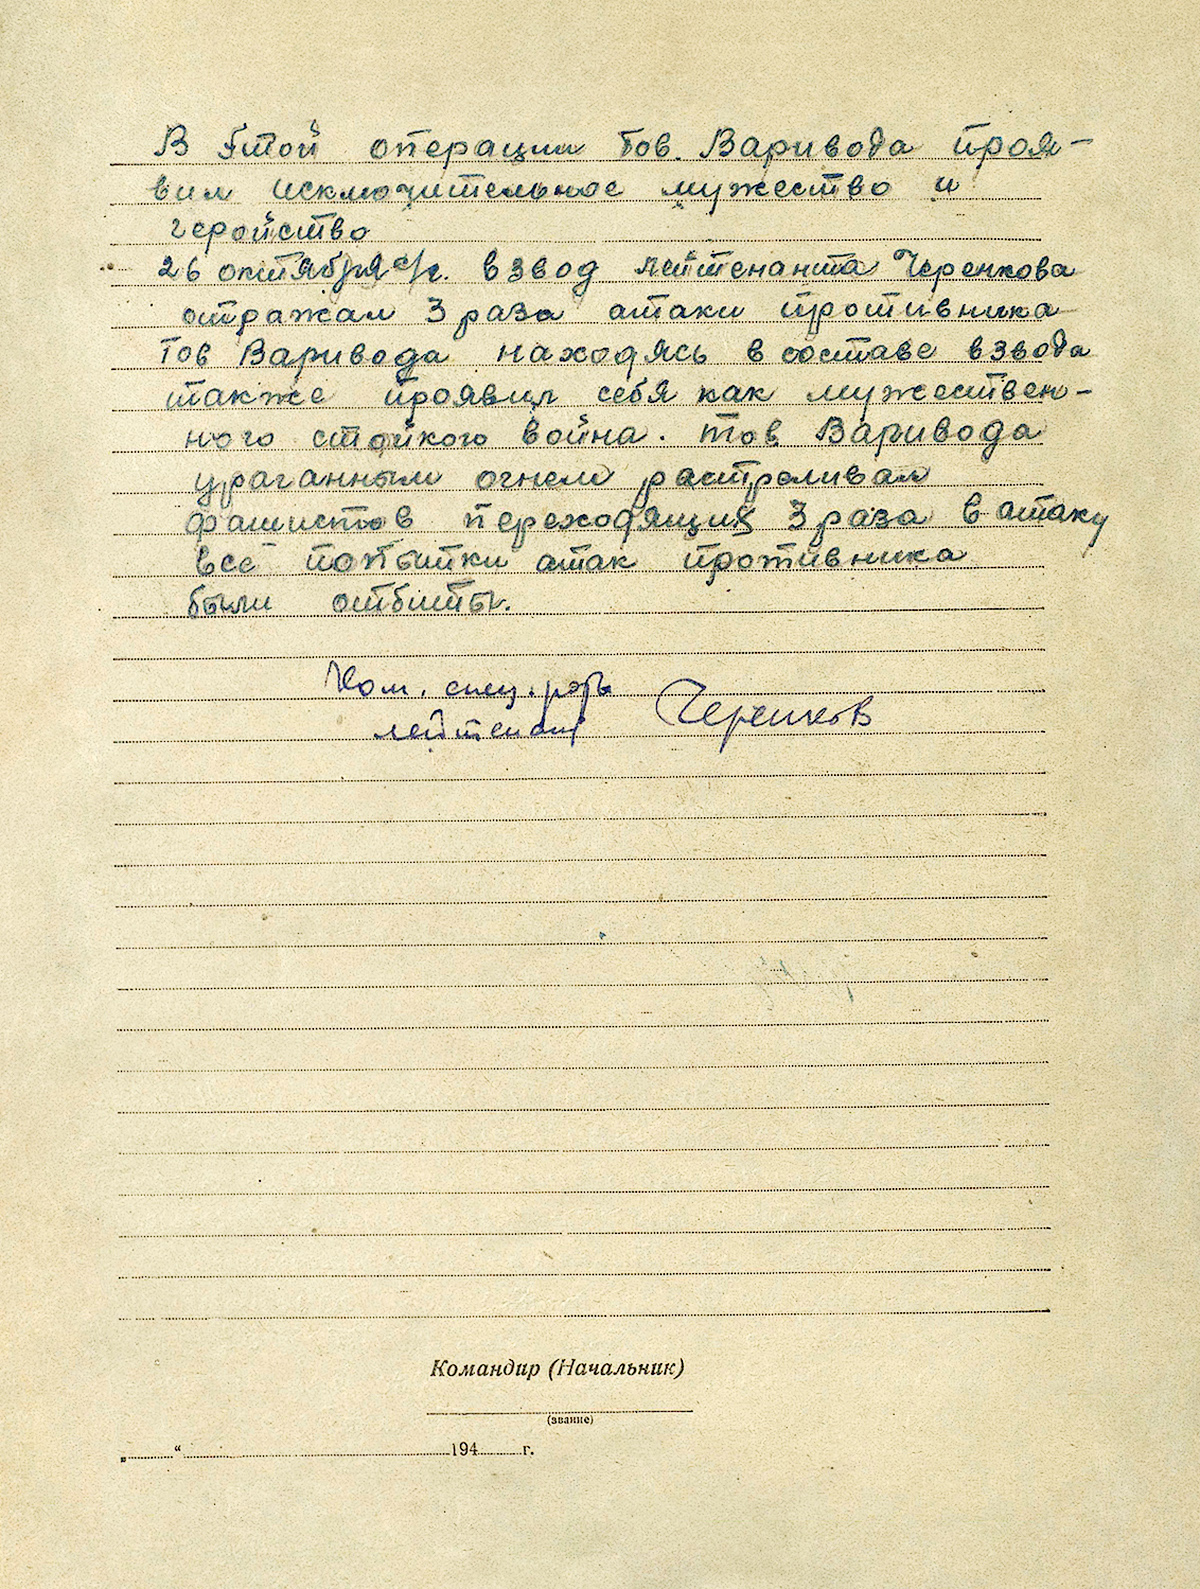 В этой операции тов. Варивода проя-
вил исключительное мужество и
геройство
26 октября с/г. взвод лейтенанта Черенкова
отражал 3 раза атаки противника
Тов Варивода находясь в составе взвода
также проявил себя как мужествен-
ного стойкого война. тов Варивода
ураганным огнем растреливал
фашистов переходящих 3 раза в атаку
все попытки атак противника
были отбиты.
Ком. спец. роты
лейтенант Черенков
Командир (Начальник)
(звание)
„ “ 194 г.